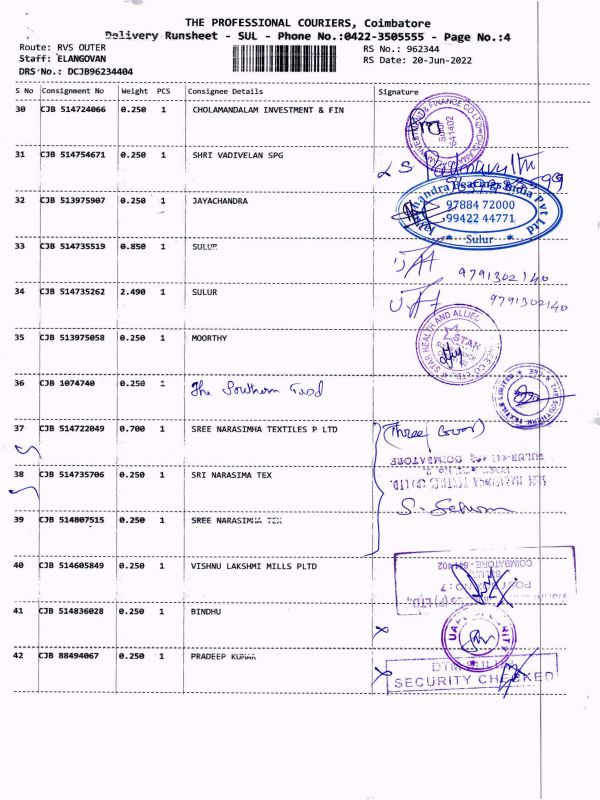 THE PROFESSIONAL COURIERS, Coimbatore
Delivery Runsheet - SUL - Phone No.:0422-3505555 - Page No.:4
Route: RVS OUTER
RS No.: 962344
Staff: ELANGOVAN
RS Date: 20-Jun-2022
DRS No.: DCJB96234404
S No Consignment No Weight PCS Consignee Details Signature
30 CJB 514724066 0.250 1 CHOLAMANDALAM INVESTMENT & FIN
31 CJB 514754671 0.250 1 SHRI VADIVELAN SPG
32 CJB 513975907 0.250 1 JAYACHANDRA
97884 72000
99422 44771
Sulur
33 CJB 514735519 0.850 1 SULUR
9791302140
34 CJB 514735262 2.490 1 SULUR
9791302140
35 CJB 513975058 0.250 1 MOORTHY
STAR HEALTH AND ALLIED
STAR
36 CJB 1074740 0.250 1 The Southern
37 CJB 514722049 0.700 1 SREE NARASIMHA TEXTILES P LTD (Three Cover)
38 CJB 514735706 0.250 1 SRI NARASIMA TEX
39 CJB 514807515 0.250 1 SREE NARASIMHA TEX
40 CJB 514605849 0.250 1 VISHNU LAKSHMI MILLS PLTD
COIMBATORE - 641 402
41 CJB 514836028 0.250 1 BINDHU
42 CJB 88494067 0.250 1 PRADEEP KUMAR
SECURITY CHECKED